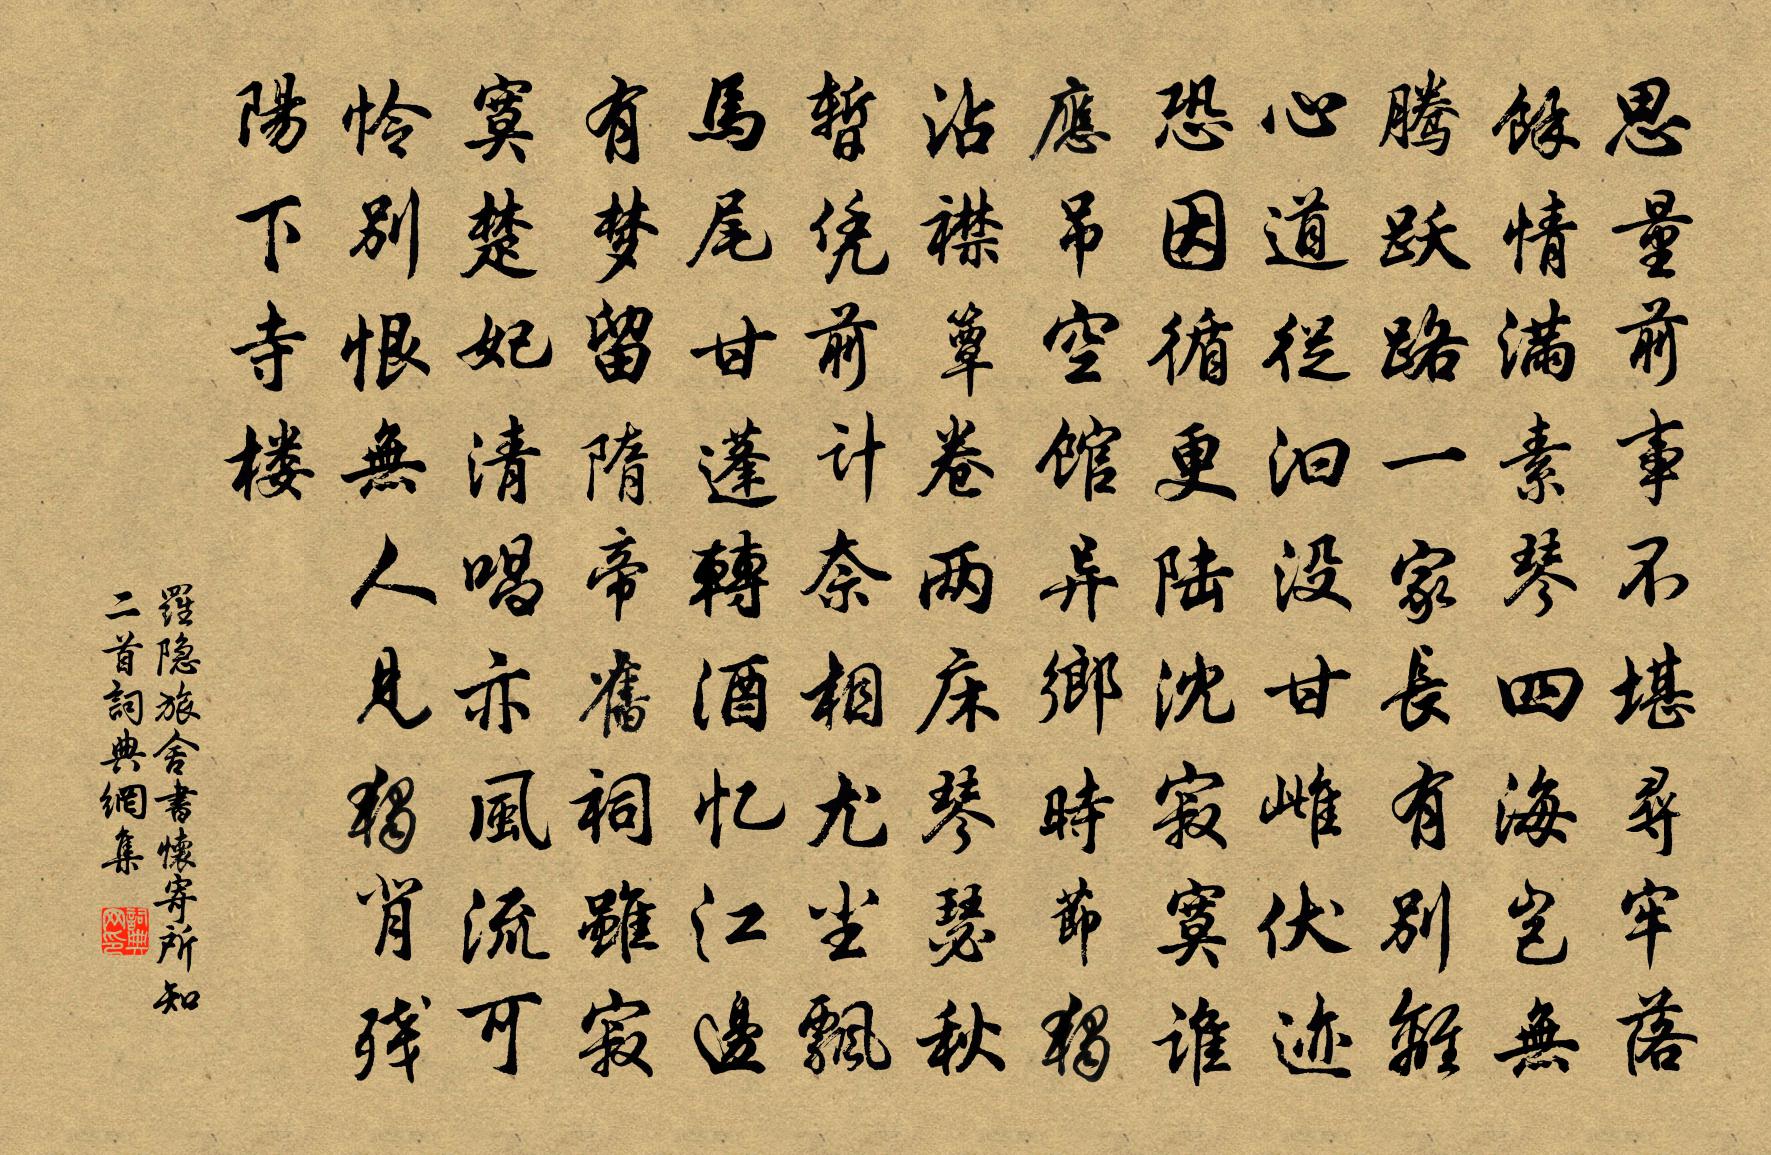 思量前事不堪尋牢落
餘情满素琴四海岂無
腾跃路一家長有别離
心道從汩没甘雌伏迹
恐因循更陆沈寂寞谁
應吊空馆异鄉時節獨
沾襟簟卷两床琴瑟秋
暫凭前计奈相尤尘飄
馬尾甘蓬轉酒忆江邊
有梦留隋帝舊祠雖寂
寞楚妃清唱亦風流可
怜别恨無人见獨肖残
陽下寺楼
羅隐旅舍書懷寄所知
二首詞典網集
詞典网印